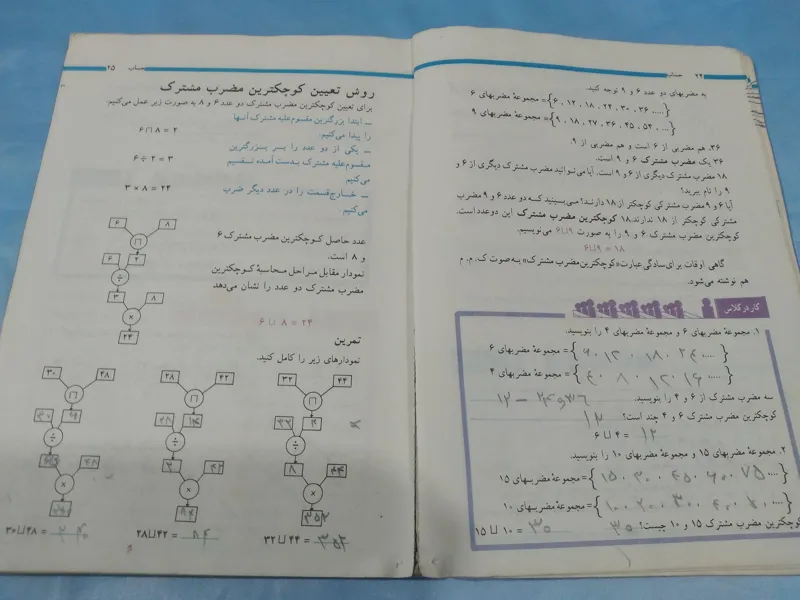 ۲۴ حساب
به مضربهای دو عدد ۶ و ۹ توجه کنید.
مجموعهٔ مضربهای ۶ = {۶ ، ۱۲ ، ۱۸ ، ۲۴ ، ۳۰ ، ۳۶ ، ....}
مجموعهٔ مضربهای ۹ = {۹ ، ۱۸ ، ۲۷ ، ۳۶ ، ۴۵ ، ۵۴ ، ...}
۳۶، هم مضربی از ۶ است و هم مضربی از ۹.
۳۶ یک مضرب مشترک ۶ و ۹ است.
۱۸ مضرب مشترک دیگری از ۶ و ۹ است. آیا می‌توانید مضرب مشترک دیگری از ۶ و
۹ را نام ببرید؟
آیا ۶ و ۹ مضرب مشترکی کوچکتر از ۱۸ دارند؟ می‌بینید که دو عدد ۶ و ۹ مضرب
مشترکی کوچکتر از ۱۸ ندارند. ۱۸ کوچکترین مضرب مشترک این دو عدد است.
کوچکترین مضرب مشترک ۶ و ۹ را به صورت ۶⊔۹ می‌نویسیم.
۶⊔۹ = ۱۸
گاهی اوقات برای سادگی عبارت «کوچکترین مضرب مشترک» به صوت ک. م. م
هم نوشته می‌شود.
کار در کلاس
۱. مجموعهٔ مضربهای ۶ و مجموعهٔ مضربهای ۴ را بنویسید.
مجموعهٔ مضربهای ۶ = {۶ ، ۱۲ ، ۱۸ ، ۲۴ ....}
مجموعهٔ مضربهای ۴ = {۴ ، ۸ ، ۱۲ ، ۱۶ .....}
سه مضرب مشترک از ۶ و ۴ را بنویسید. ۱۲ - ۲۴ و ۳۶
کوچکترین مضرب مشترک ۶ و ۴ چند است؟ ۱۲
۶⊔۴ = ۱۲
۲. مجموعهٔ مضربهای ۱۵ و مجموعهٔ مضربهای ۱۰ را بنویسید.
مجموعهٔ مضربهای ۱۵ = {۱۵ ، ۳۰ ، ۴۵ ، ۶۰ ، ۷۵ ....}
مجموعهٔ مضربهای ۱۰ = {۱۰ ، ۲۰ ، ۳۰ ، ۴۰ ....}
کوچکترین مضرب مشترک ۱۵ و ۱۰ چیست؟ ۳۵ ۱۵⊔۱۰ = ۳۵
حساب ۲۵
روش تعیین کوچکترین مضرب مشترک
برای تعیین کوچکترین مضرب مشترک دو عدد ۶ و ۸ به صورت زیر عمل می‌کنیم:
ــ ابتدا بزرگترین مقسوم‌علیه مشترک آنها
را پیدا می‌کنیم.
۶⊓۸ = ۲
ــ یکی از دو عدد را بر بزرگترین
مقسوم‌علیه مشترک بدست آمده تقسیم
می‌کنیم
۶ ÷ ۲ = ۳
ــ خارج‌قسمت را در عدد دیگر ضرب
می‌کنیم.
۳ × ۸ = ۲۴
عدد حاصل کوچکترین مضرب مشترک ۶
و ۸ است.
نمودار مقابل مراحل محاسبهٔ کوچکترین
مضرب مشترک دو عدد را نشان می‌دهد
۶ ⊔ ۸ = ۲۴
۶ ۸
⊓
۶ ۲
÷
۳ ۸
×
۲۴
تمرین
نمودارهای زیر را کامل کنید.
۳۲ ۴۴
⊓
۳۲ ۴
÷
۸ ۴۴
×
۳۵۲
۳۲⊔۴۴ = ۳۵۲
۲۸ ۴۲
⊓
۲۸ ۱۴
÷
۴۲
×
۸۴
۲۸⊔۴۲ = ۸۴
۳۰ ۴۸
⊓
۳۰
÷
۴۸
×
۳۰⊔۴۸ =